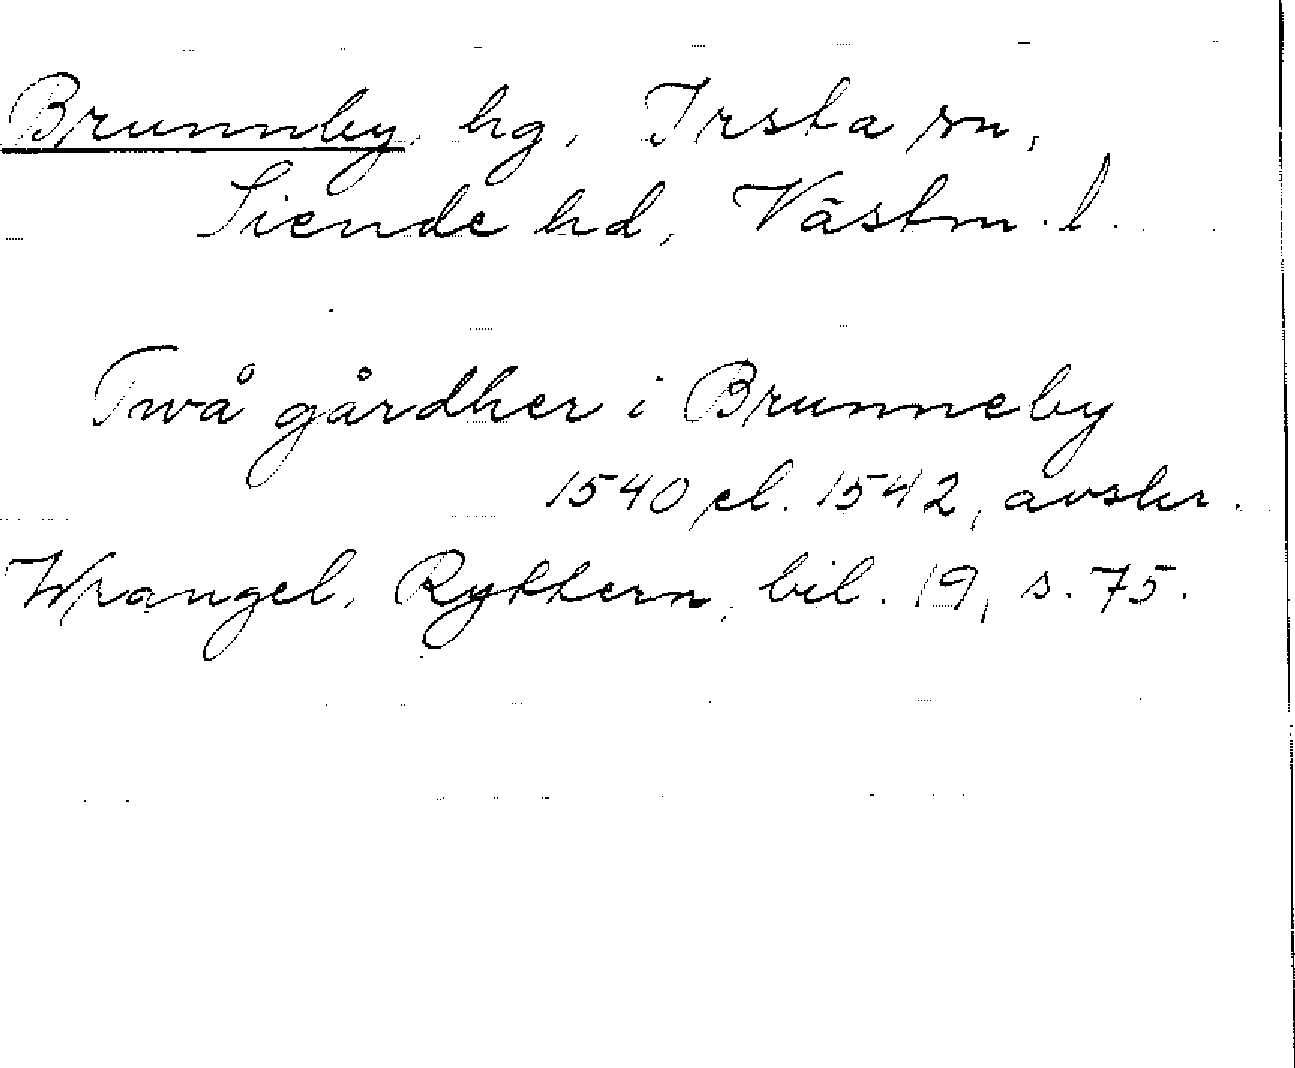 Brunnby, hg, Irsta sn,
Siende hd, Västm. l.
Twå gårdher i Brunneby
1540 el. 1542, avskr.
Wrangel, Ryttern, bil. 19, s. 75.